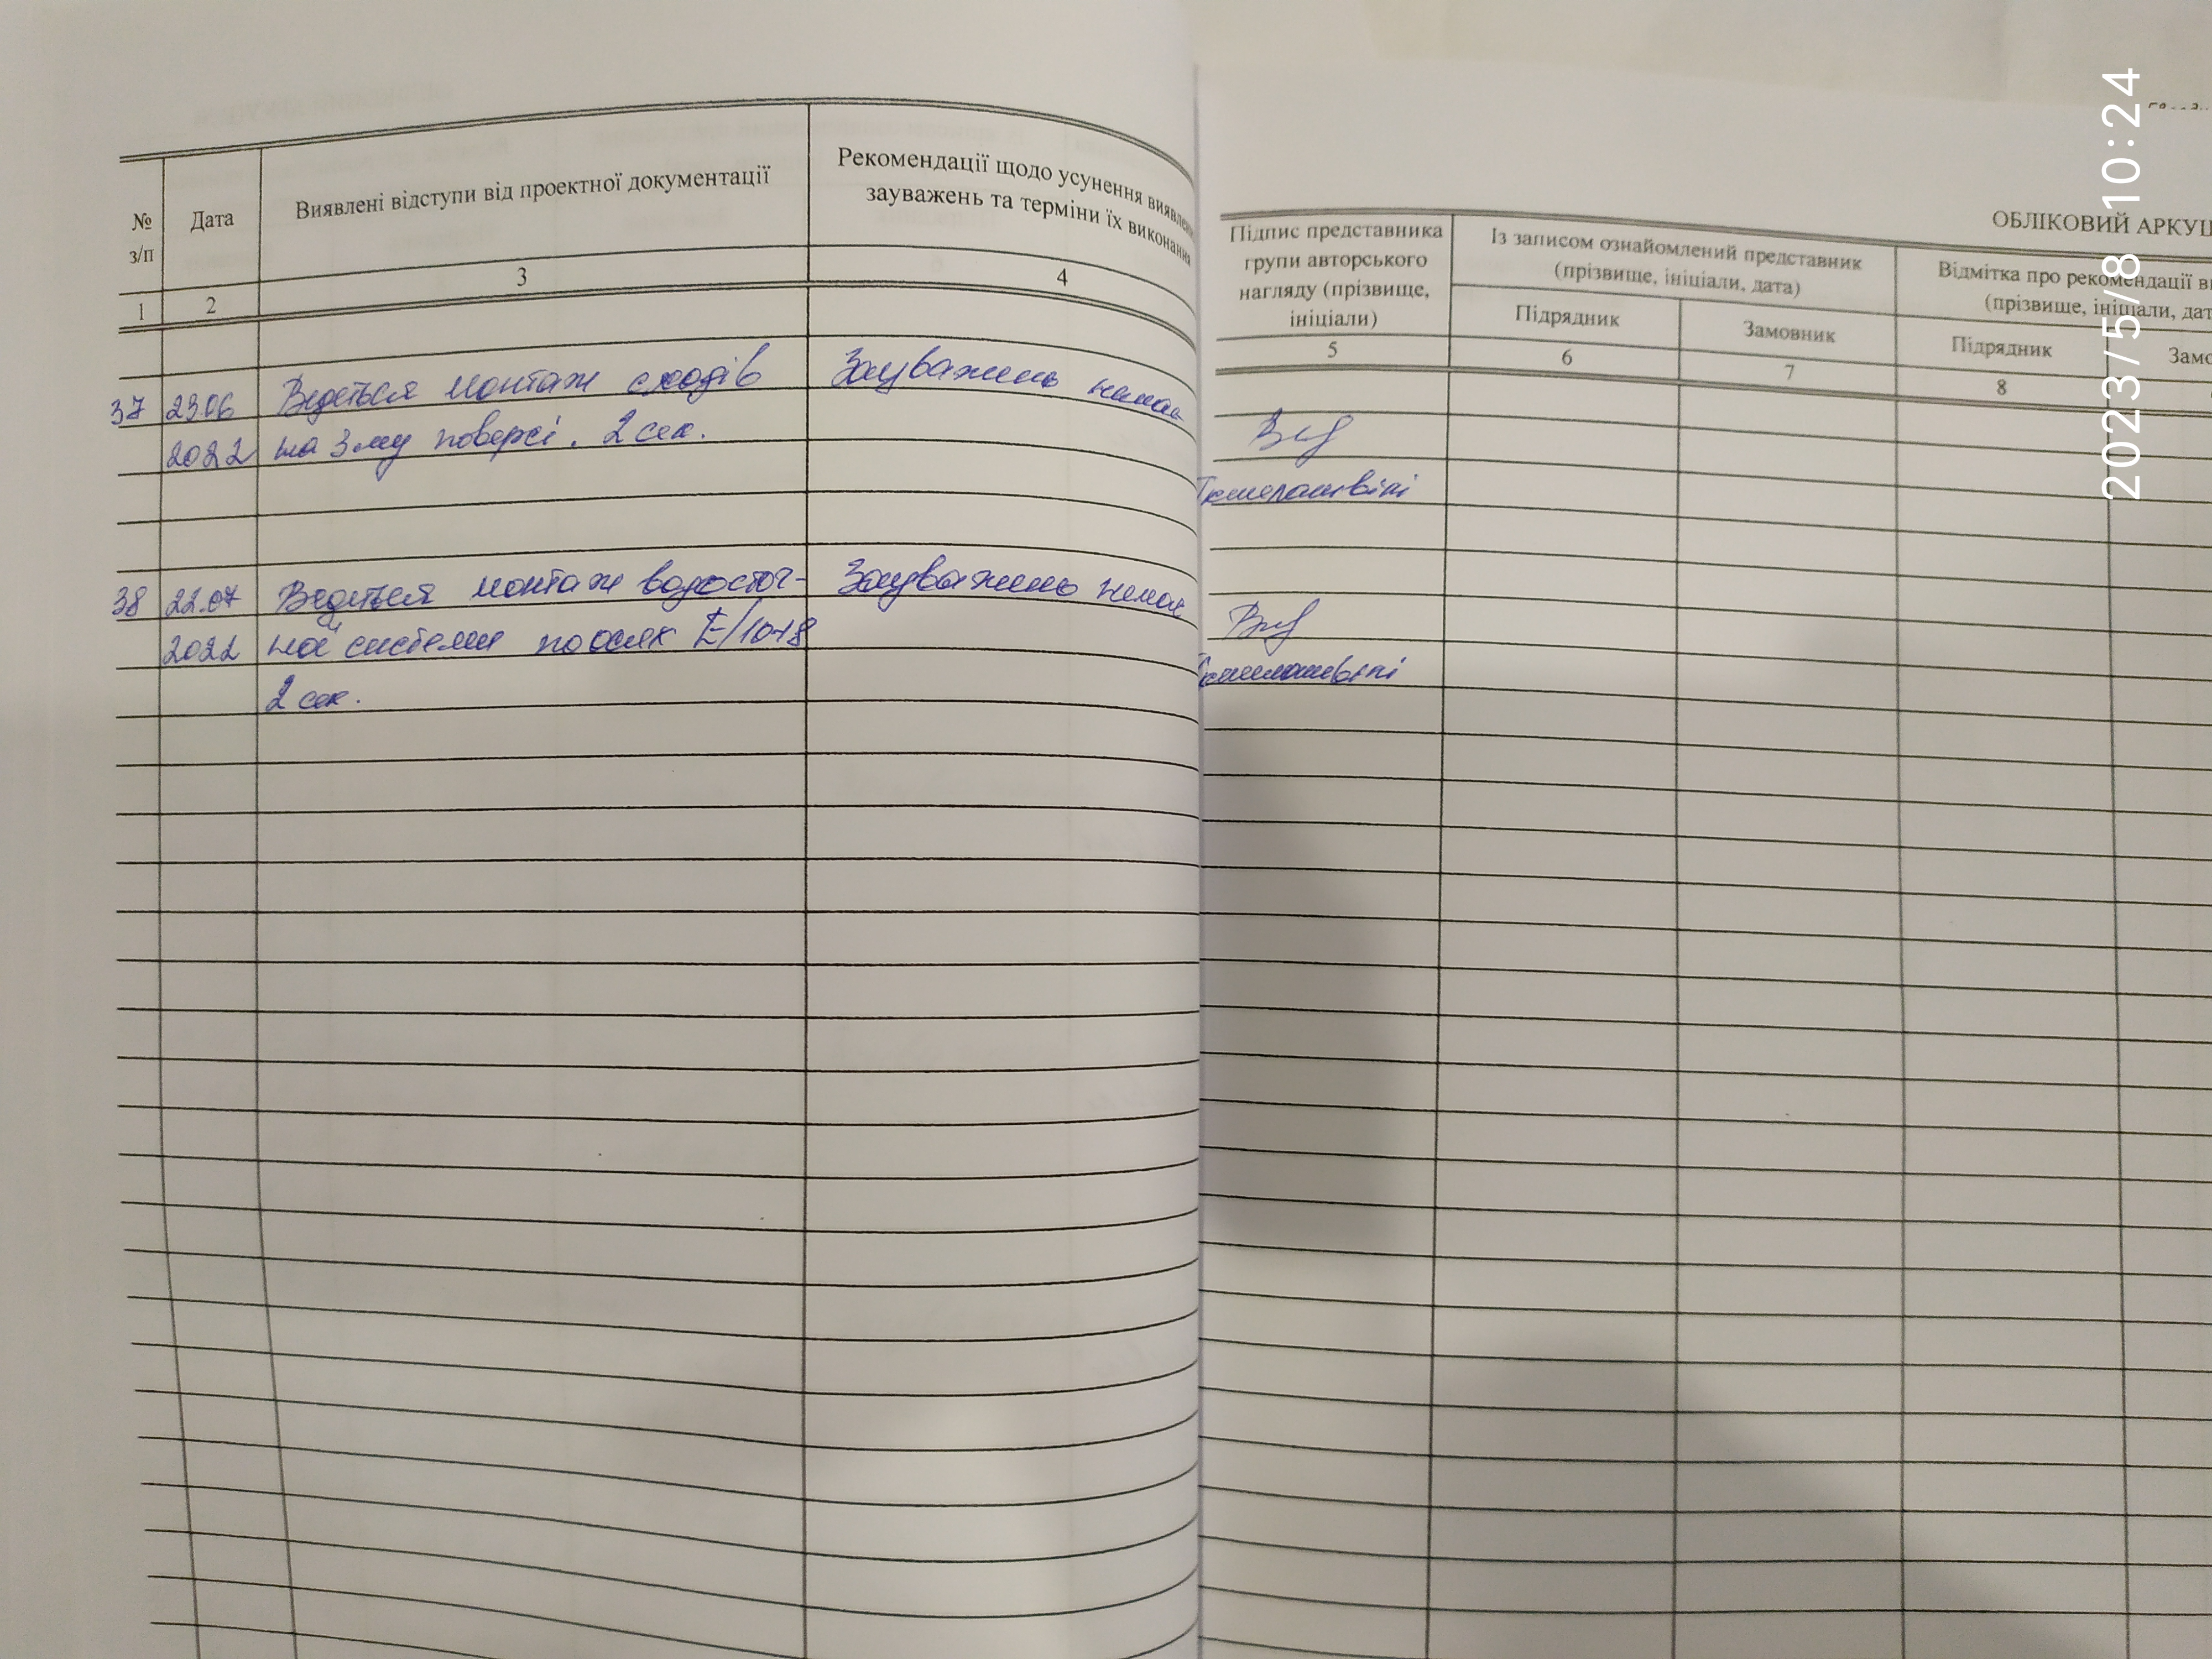 №
з/п
Дата
Виявлені відступи від проектної документації
Рекомендації щодо усунення виявлених
зауважень та терміни їх виконання
1
2
3
4
37
23.06
Ведеться монтаж сходів
Зауважень немає
2022
на 3му поверсі. 2 сек.
38
22.07
Ведеться монтаж водосточ-
Зауважень немає
2022
ної системи по осях Е/10-18
2 сек.
ОБЛІКОВИЙ АРКУШ
Підпис представника
групи авторського
нагляду (прізвище,
ініціали)
Із записом ознайомлений представник
(прізвище, ініціали, дата)
Відмітка про рекомендації
(прізвище, ініціали,
Підрядник
Замовник
Підрядник
5
6
7
8
2023/5/8 10:24